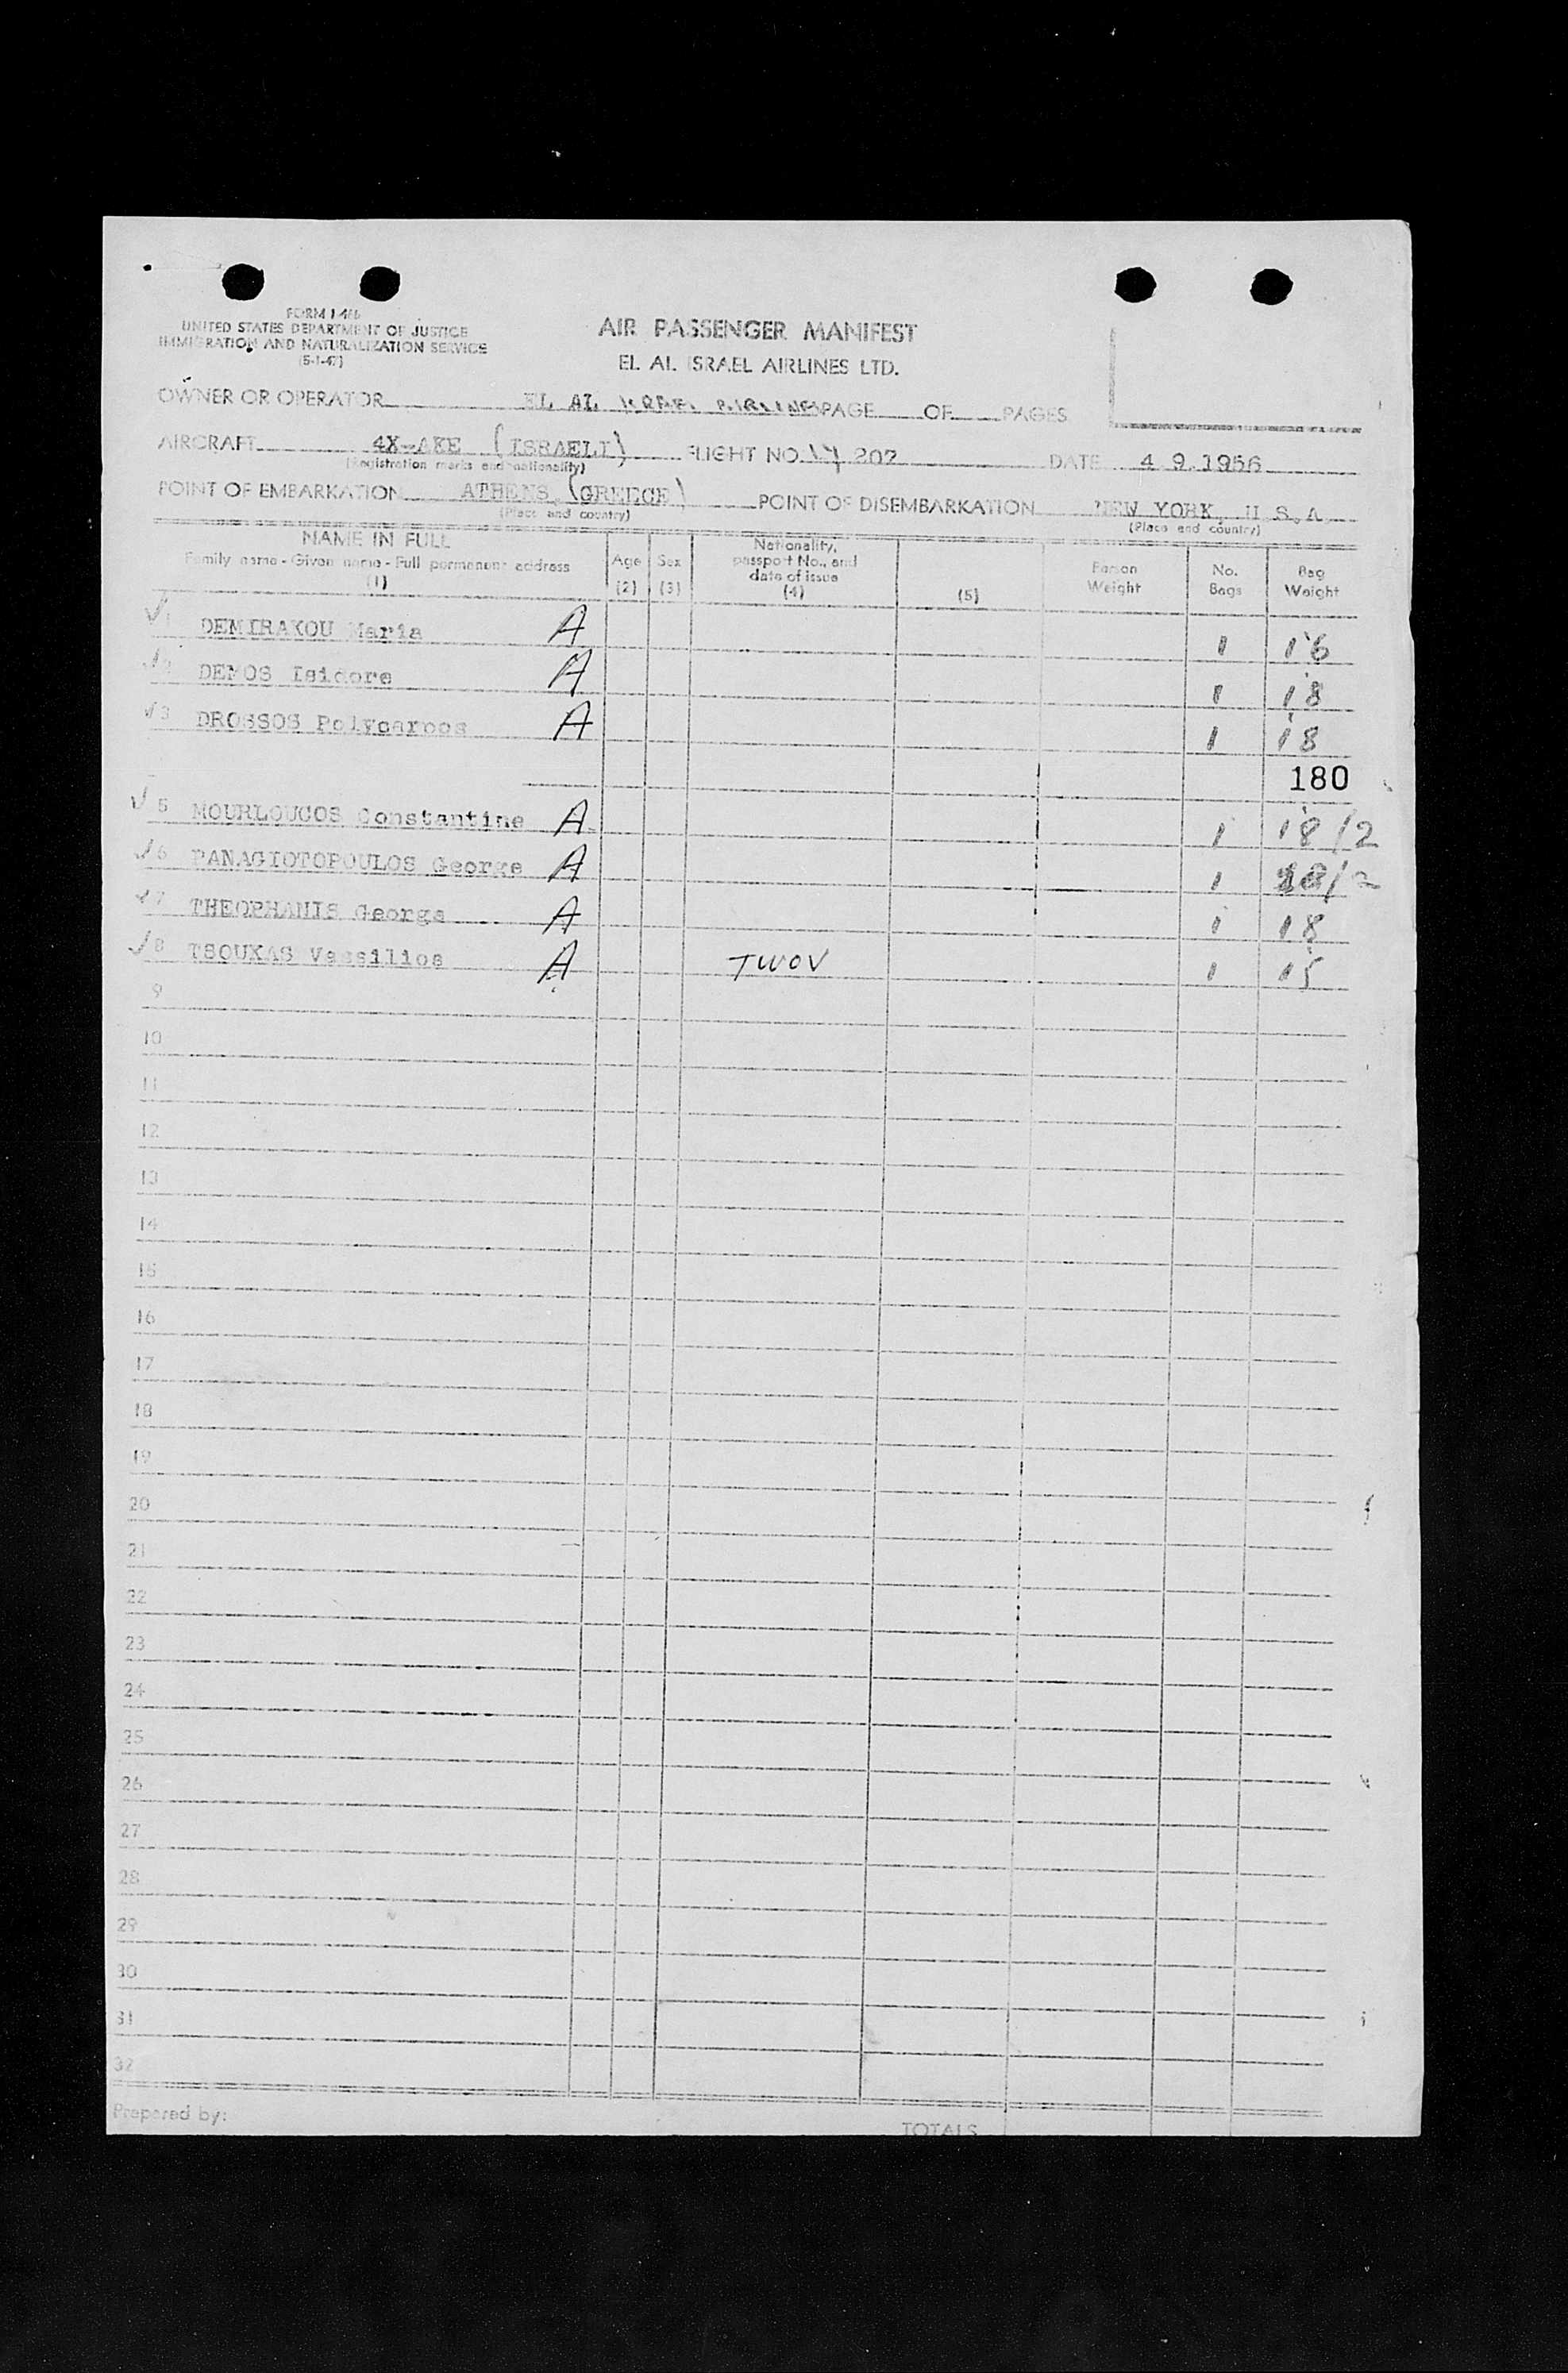 FORM I-466
UNITED STATES DEPARTMENT OF JUSTICE
IMMIGRATION AND NATURALIZATION SERVICE
(5-1-47)
AIR PASSENGER MANIFEST
EL AL ISRAEL AIRLINES LTD.
OWNER OR OPERATOR EL AL ISRAEL AIRLINES PAGE OF PAGES
AIRCRAFT 4X-AKE (ISRAELI) FLIGHT NO. LY 207 DATE 4 9.1956
(Registration marks and nationality)
POINT OF EMBARKATION ATHENS (GREECE) POINT OF DISEMBARKATION NEW YORK, U.S.A.
(Place and country) (Place and country)
NAME IN FULL
Family name - Given name - Full permanent address
(1)
Age
(2)
Sex
(3)
Nationality,
passport No., and
date of issue
(4)
(5)
Person
Weight
No.
Bags
Bag
Weight
1 DEMIRAKOU Maria A 1 16
2 DEMOS Isidore A 1 18
3 DROSSOS Polycarpos A 1 18
180
5 MOURLOUCOS Constantine A 1 18/2
6 PANAGIOTOPOULOS George A 1 /2
7 THEOPHANIS George A 1 18
8 TSOUKAS Vassilios A TWOV 1 15
9
10
11
12
13
14
15
16
17
18
19
20
21
22
23
24
25
26
27
28
29
30
31
32
Prepared by:
TOTALS